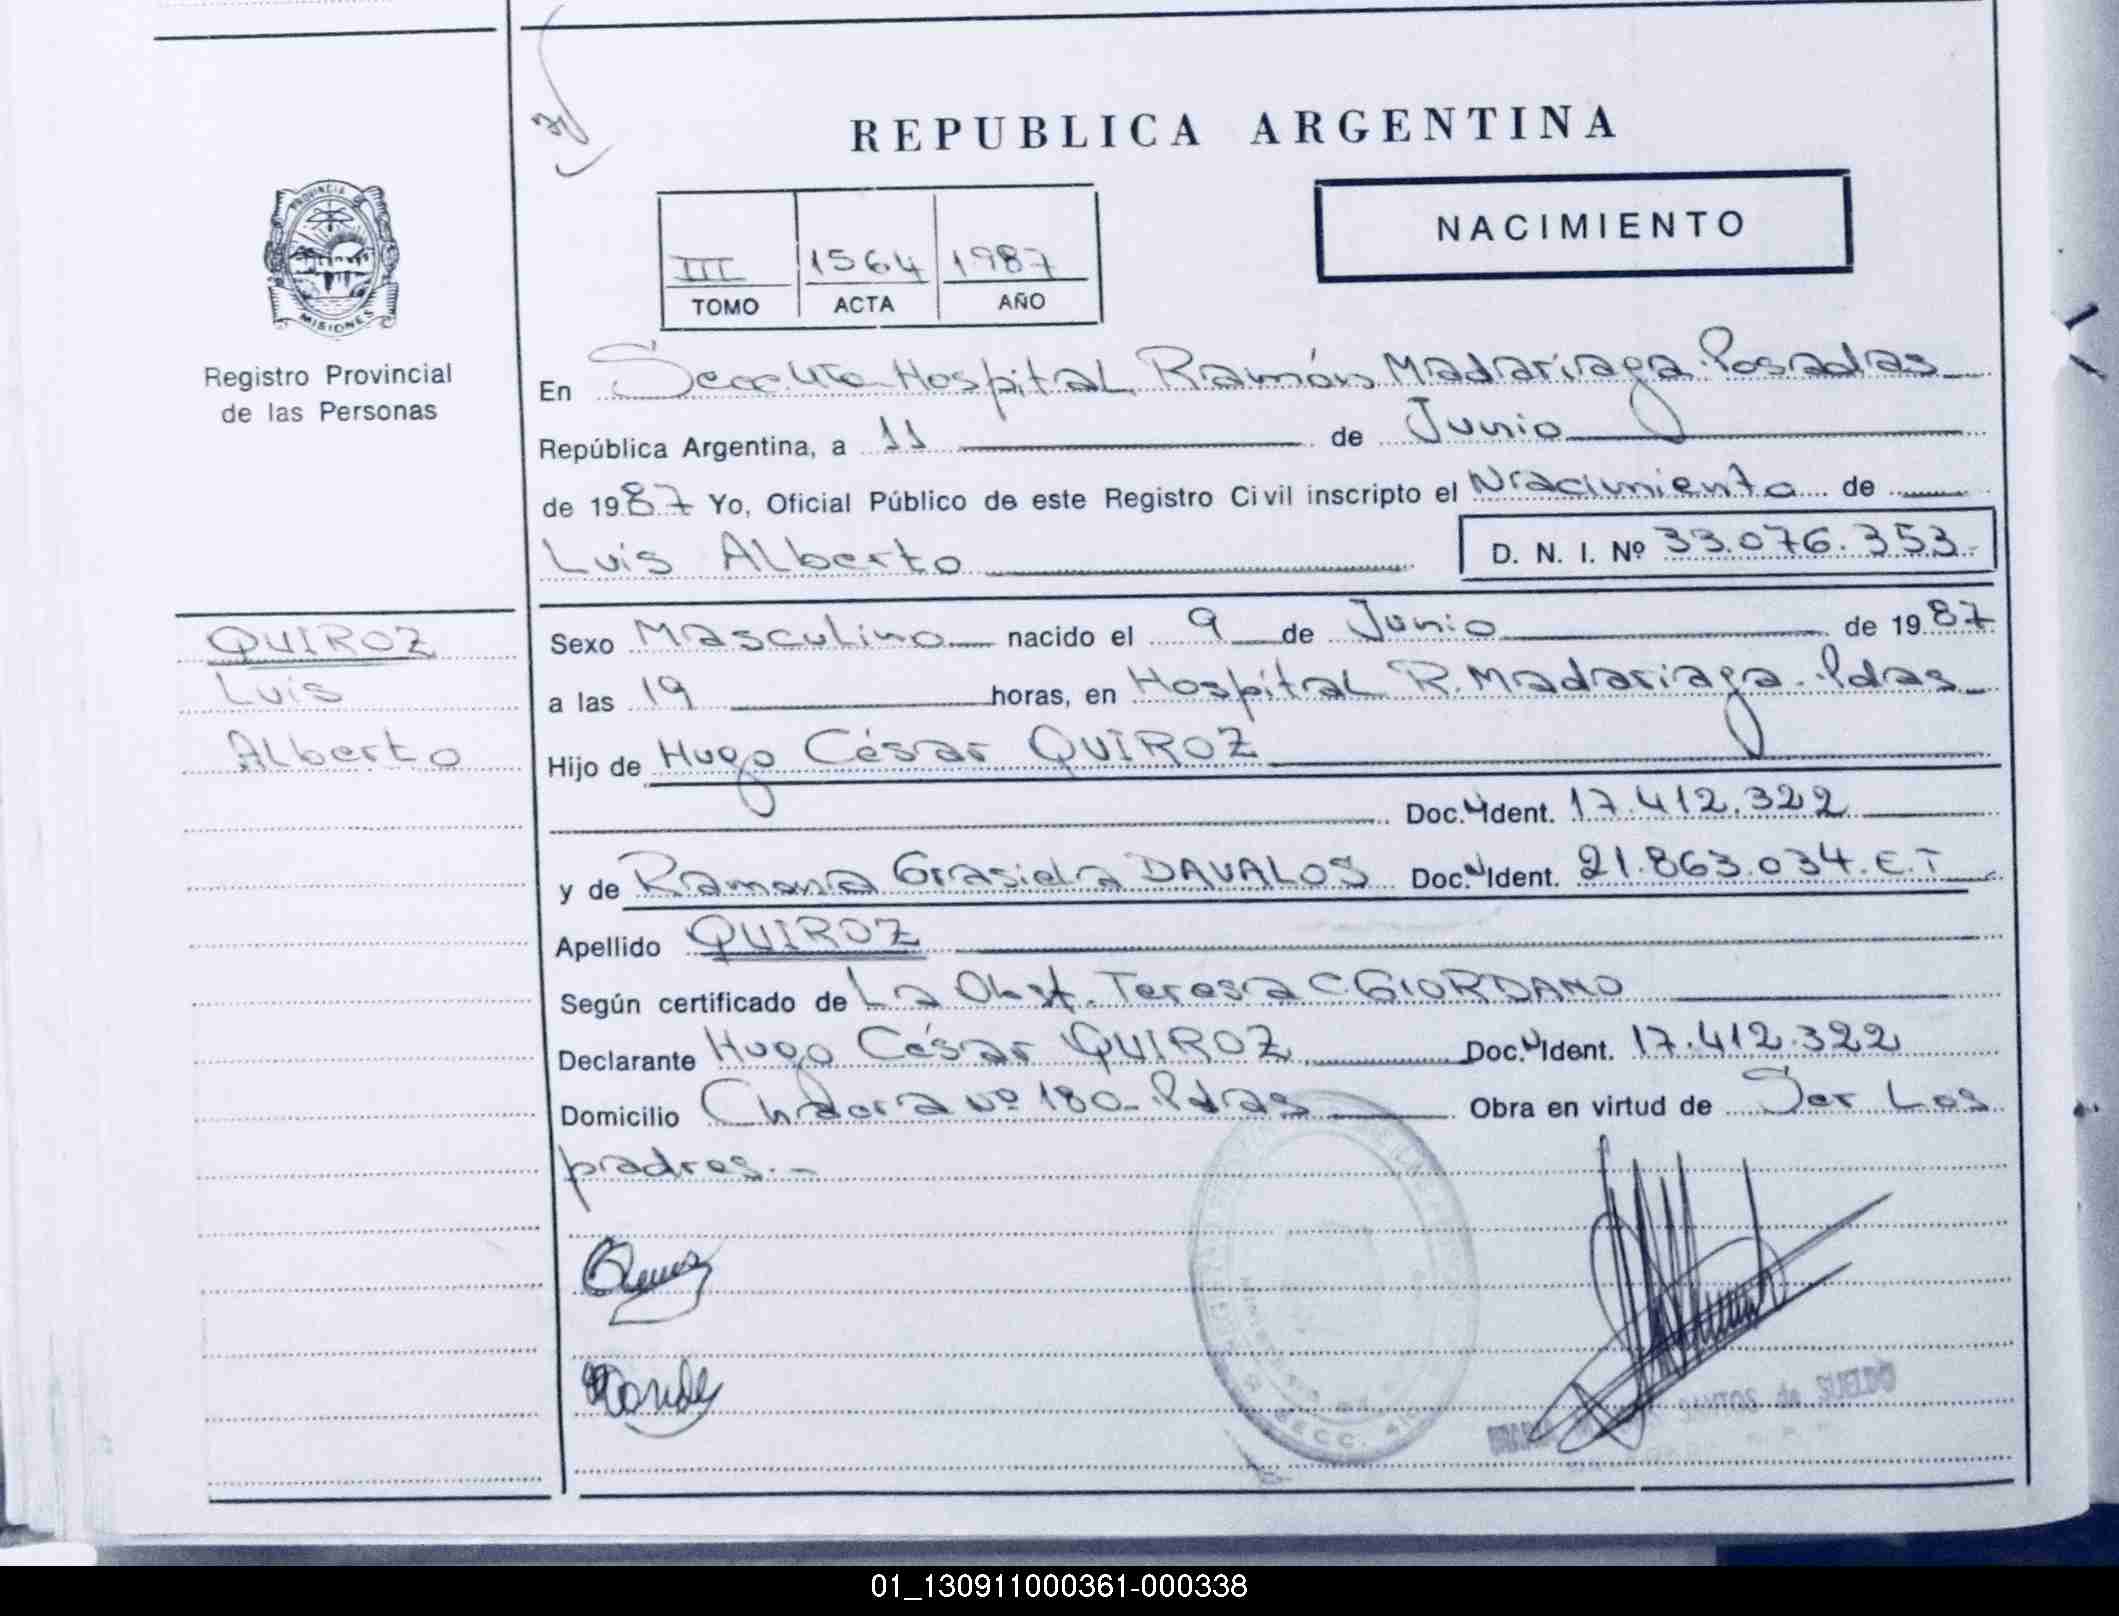 REPUBLICA ARGENTINA
NACIMIENTO
III 1564 1987
TOMO ACTA AÑO
PROVINCIA
MISIONES
Registro Provincial
de las Personas
En Secc 4ta Hospital Ramón Madariaga. Posadas
República Argentina, a 11 de Junio
de 1987 Yo, Oficial Público de este Registro Civil inscripto el Nacimiento de
Luis Alberto D. N. I. Nº 33.076.353
QUIROZ
Luis
Alberto
Sexo Masculino nacido el 9 de Junio de 1987
a las 19 horas, en Hospital R. Madariaga. Pdas
Hijo de Hugo César QUIROZ
Doc. Ident. 17.412.322
y de Ramona Grasiela DAVALOS Doc. Ident. 21.863.034.E.T
Apellido QUIROZ
Según certificado de La Obst. Teresa C GIORDANO
Declarante Hugo César QUIROZ Doc. Ident. 17.412.322
Domicilio Chadora nº 180 Pdas Obra en virtud de Ser Los
padres.-
SECC. 4
SANTOS de SUELDO
01_130911000361-000338